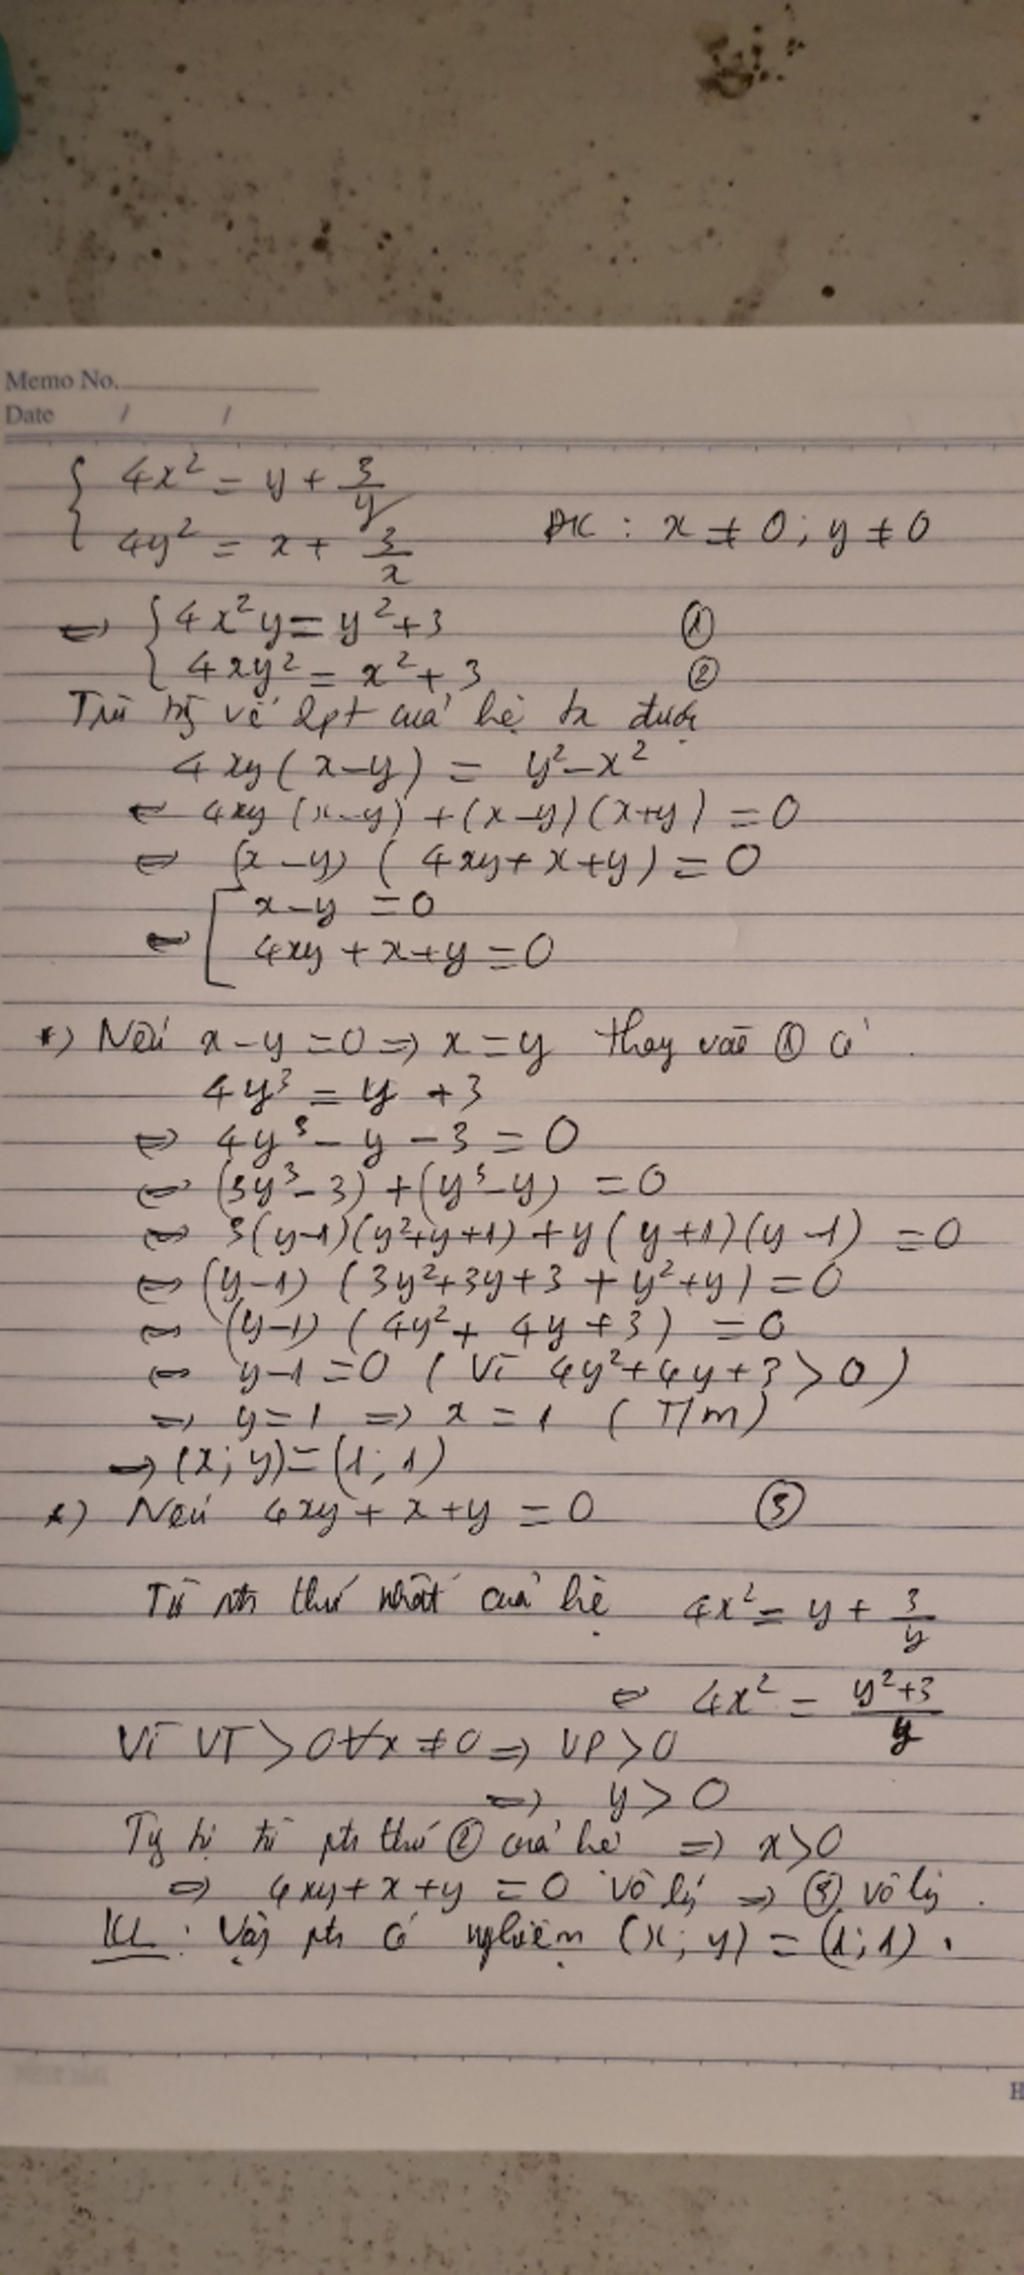 Memo No.
Date / /
{ 4x² = y + 3/y
{ 4y² = x + 3/x ĐK : x ≠ 0 ; y ≠ 0
⇔ { 4x²y = y² + 3 ①
{ 4xy² = x² + 3 ②
Trừ vế 2pt của hệ ta được
4xy(x-y) = y² - x²
⇔ 4xy(x-y) + (x-y)(x+y) = 0
⇔ (x-y)(4xy + x + y) = 0
⇔ [ x-y = 0
[ 4xy + x + y = 0
*) Nếu x-y = 0 ⇒ x = y thay vào ① có
4y³ = y + 3
⇔ 4y³ - y - 3 = 0
⇔ (3y³ - 3) + (y³ - y) = 0
⇔ 3(y-1)(y²+y+1) + y(y+1)(y-1) = 0
⇔ (y-1)(3y²+3y+3 + y²+y) = 0
⇔ (y-1)(4y² + 4y + 3) = 0
⇔ y-1 = 0 (Vì 4y²+4y+3 > 0)
⇒ y = 1 ⇒ x = 1 (T/m)
⇒ (x; y) = (1; 1)
*) Nếu 4xy + x + y = 0 ③
Từ pth thứ nhất của hệ 4x² = y + 3/y
⇔ 4x² = (y²+3)/y
Vì VT > 0 ∀x ≠ 0 ⇒ VP > 0
⇒ y > 0
Tg tự từ pth thứ ② của hệ ⇒ x > 0
⇒ 4xy + x + y = 0 vô lý ⇒ ③ vô lý .
KL : Vậy pth có nghiệm (x; y) = (1; 1) .
H